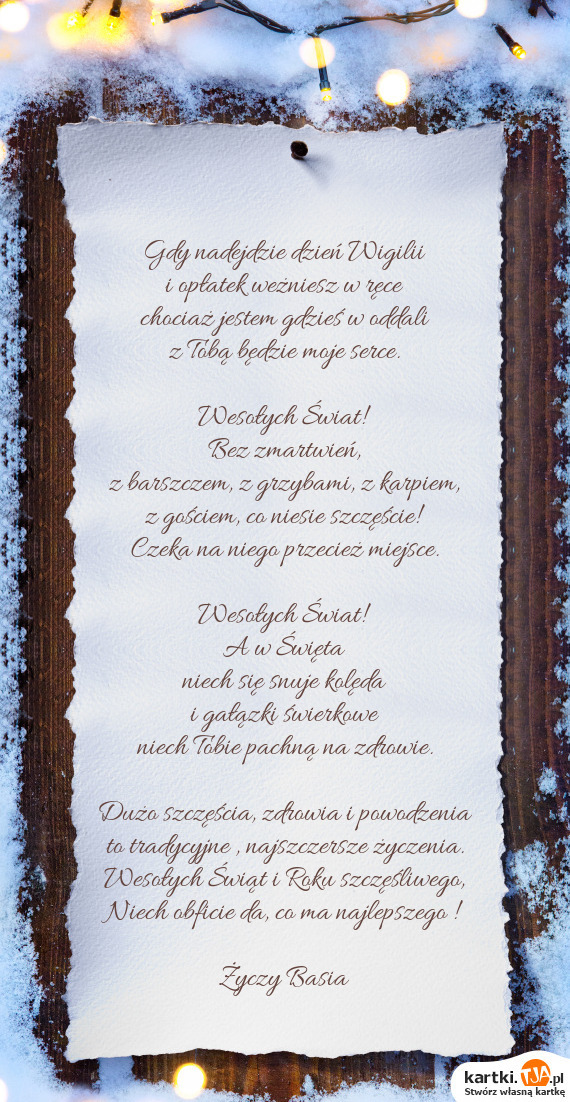 Gdy nadejdzie dzień Wigilii
i opłatek weżniesz w ręce
chociaż jestem gdzieś w oddali
z Tobą będzie moje serce.
Wesołych Świat!
Bez zmartwień,
z barszczem, z grzybami, z karpiem,
z gościem, co niesie szczęście!
Czeka na niego przecież miejsce.
Wesołych Świat!
A w Święta
niech się snuje kolęda
i gałązki świerkowe
niech Tobie pachną na zdrowie.
Dużo szczęścia, zdrowia i powodzenia
to tradycyjne , najszczersze życzenia.
Wesołych Świąt i Roku szczęśliwego,
Niech obficie da, co ma najlepszego !
Życzy Basia
kartki.TJA.pl
Stwórz własną kartkę